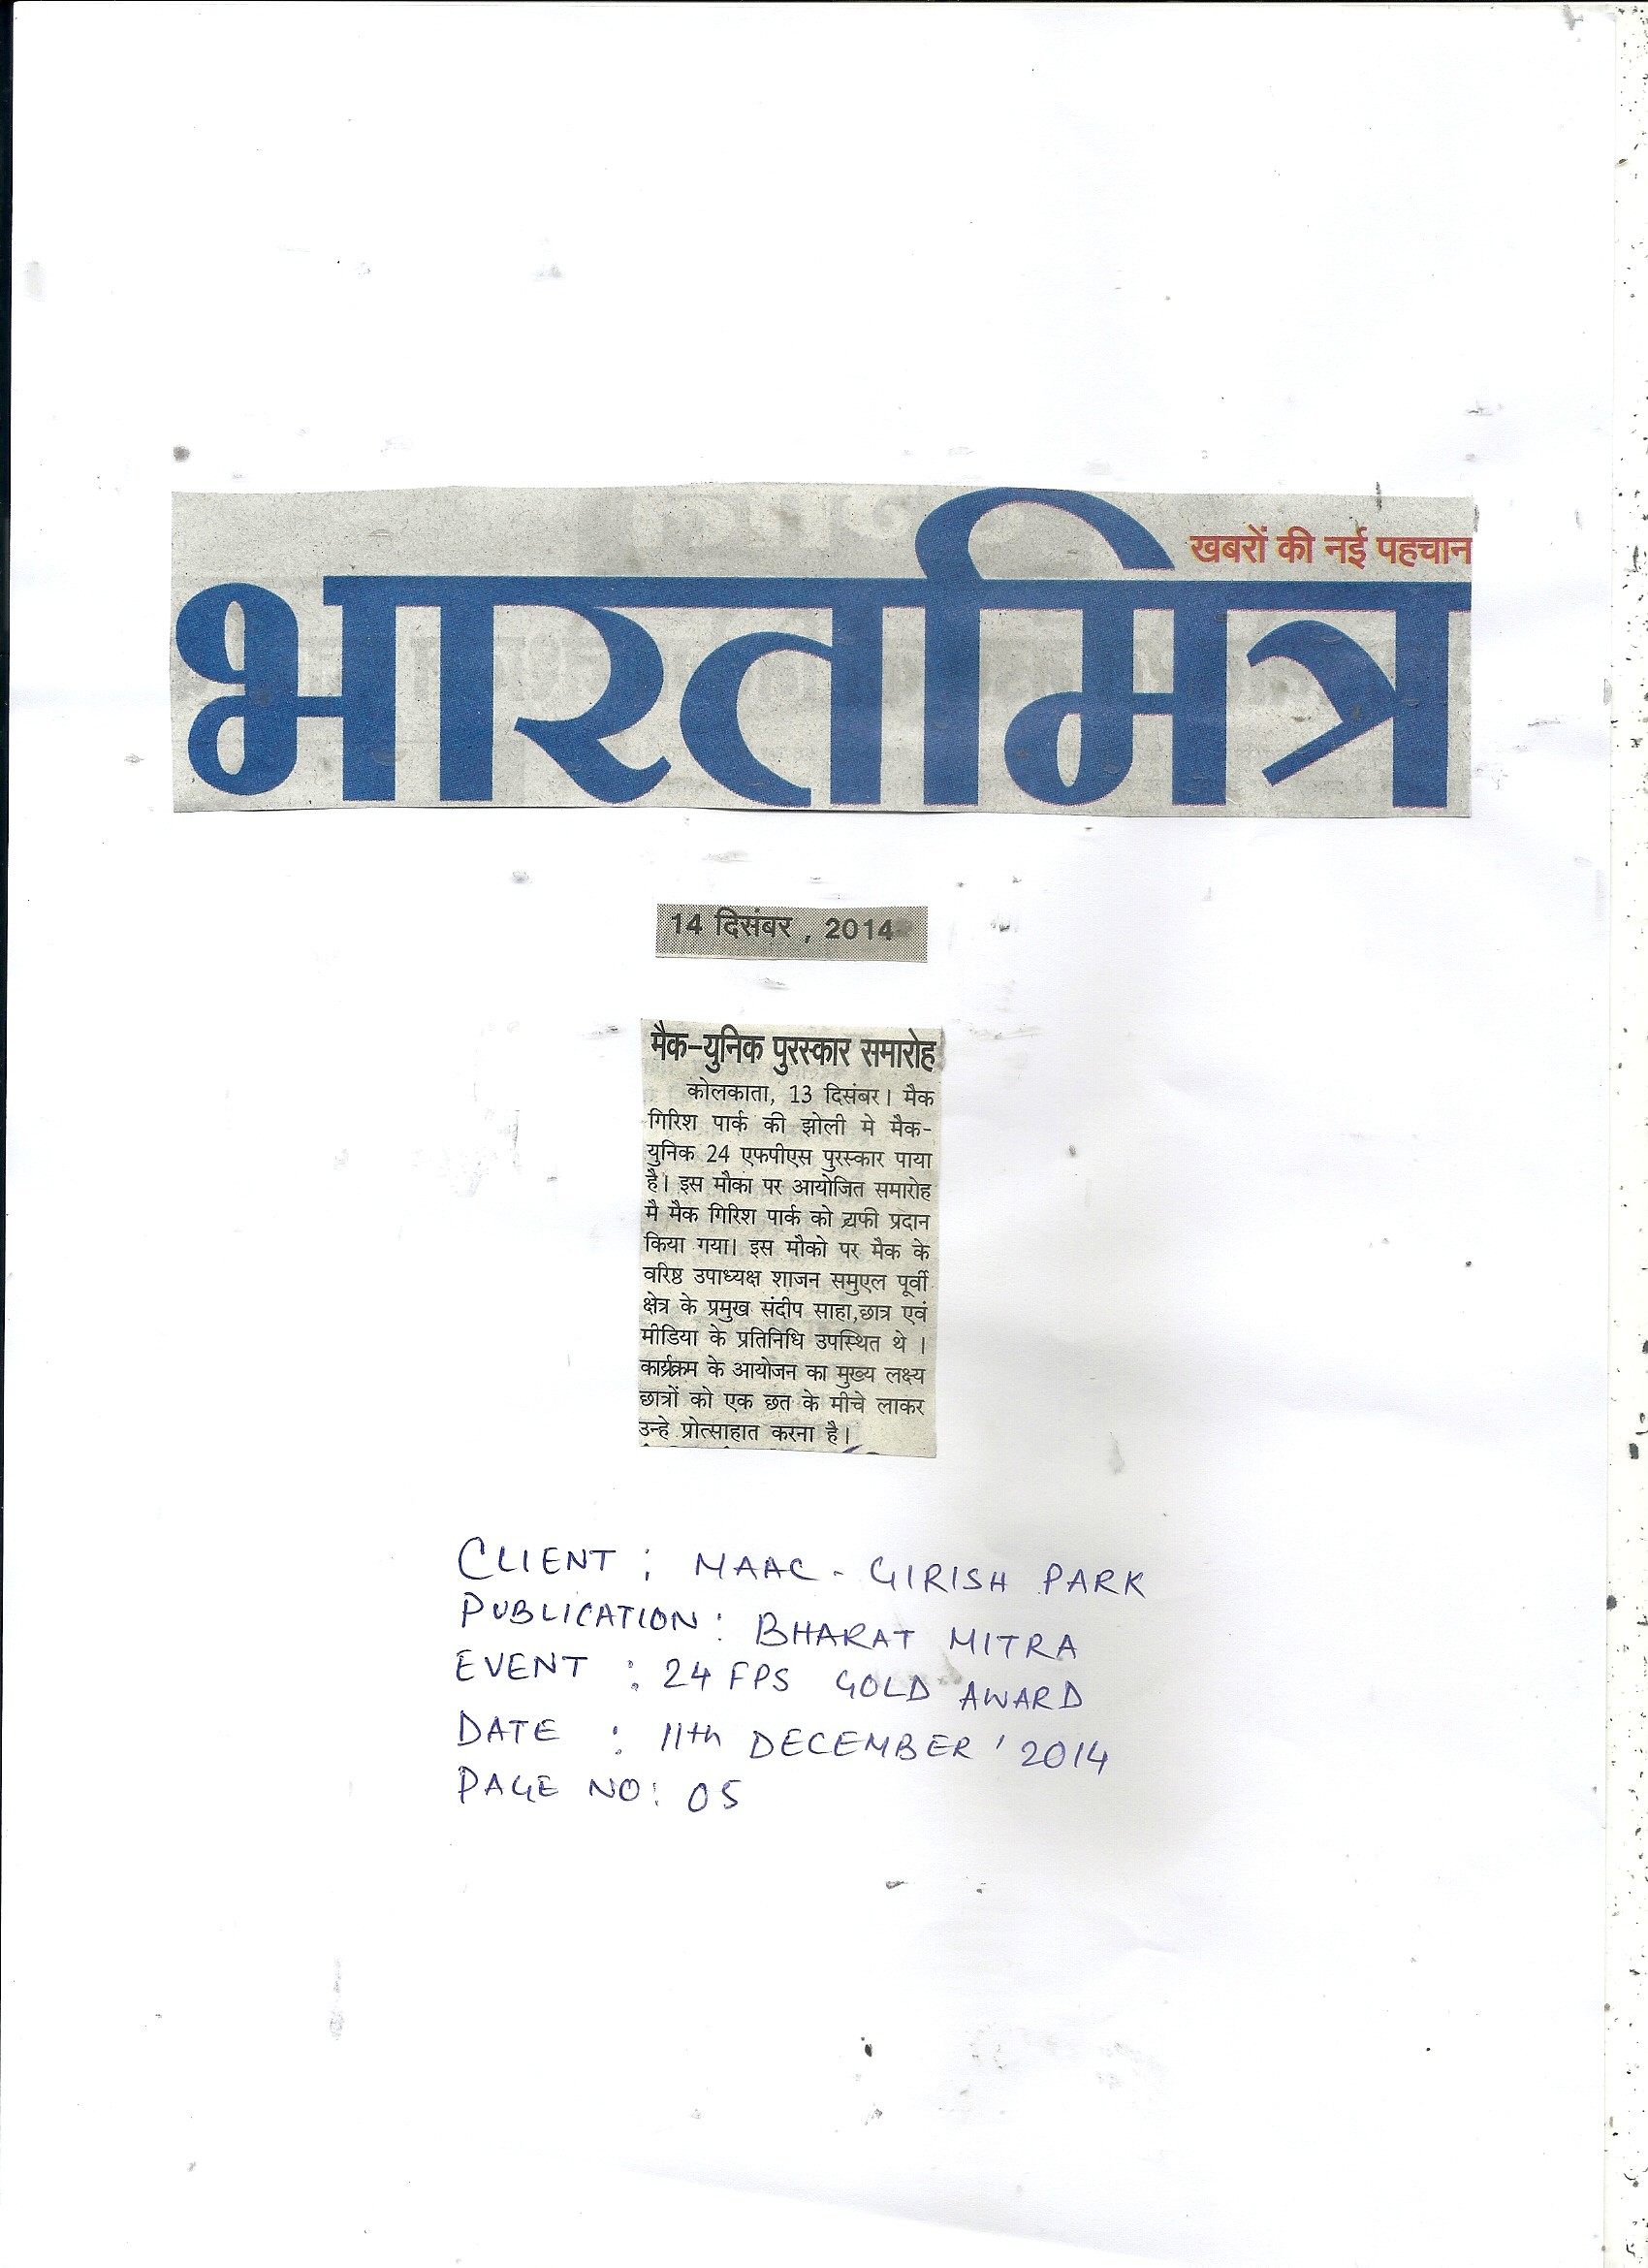 खबरों की नई पहचान
भारतमित्र
14 दिसंबर, 2014
मैक-युनिक पुरस्कार समारोह
कोलकाता, 13 दिसंबर। मैक
गिरिश पार्क की झोली मे मैक-
युनिक 24 एफपीएस पुरस्कार पाया
है। इस मौका पर आयोजित समारोह
मै मैक गिरिश पार्क को ट्रफी प्रदान
किया गया। इस मौको पर मैक के
वरिष्ठ उपाध्यक्ष शाजन समुएल पूर्वी
क्षेत्र के प्रमुख संदीप साहा,छात्र एवं
मीडिया के प्रतिनिधि उपस्थित थे ।
कार्यक्रम के आयोजन का मुख्य लक्ष्य
छात्रों को एक छत के मीचे लाकर
उन्हे प्रोत्साहात करना है।
CLIENT : MAAC - GIRISH PARK
PUBLICATION : BHARAT MITRA
EVENT : 24 FPS GOLD AWARD
DATE : 11th DECEMBER ' 2014
PAGE NO: 05